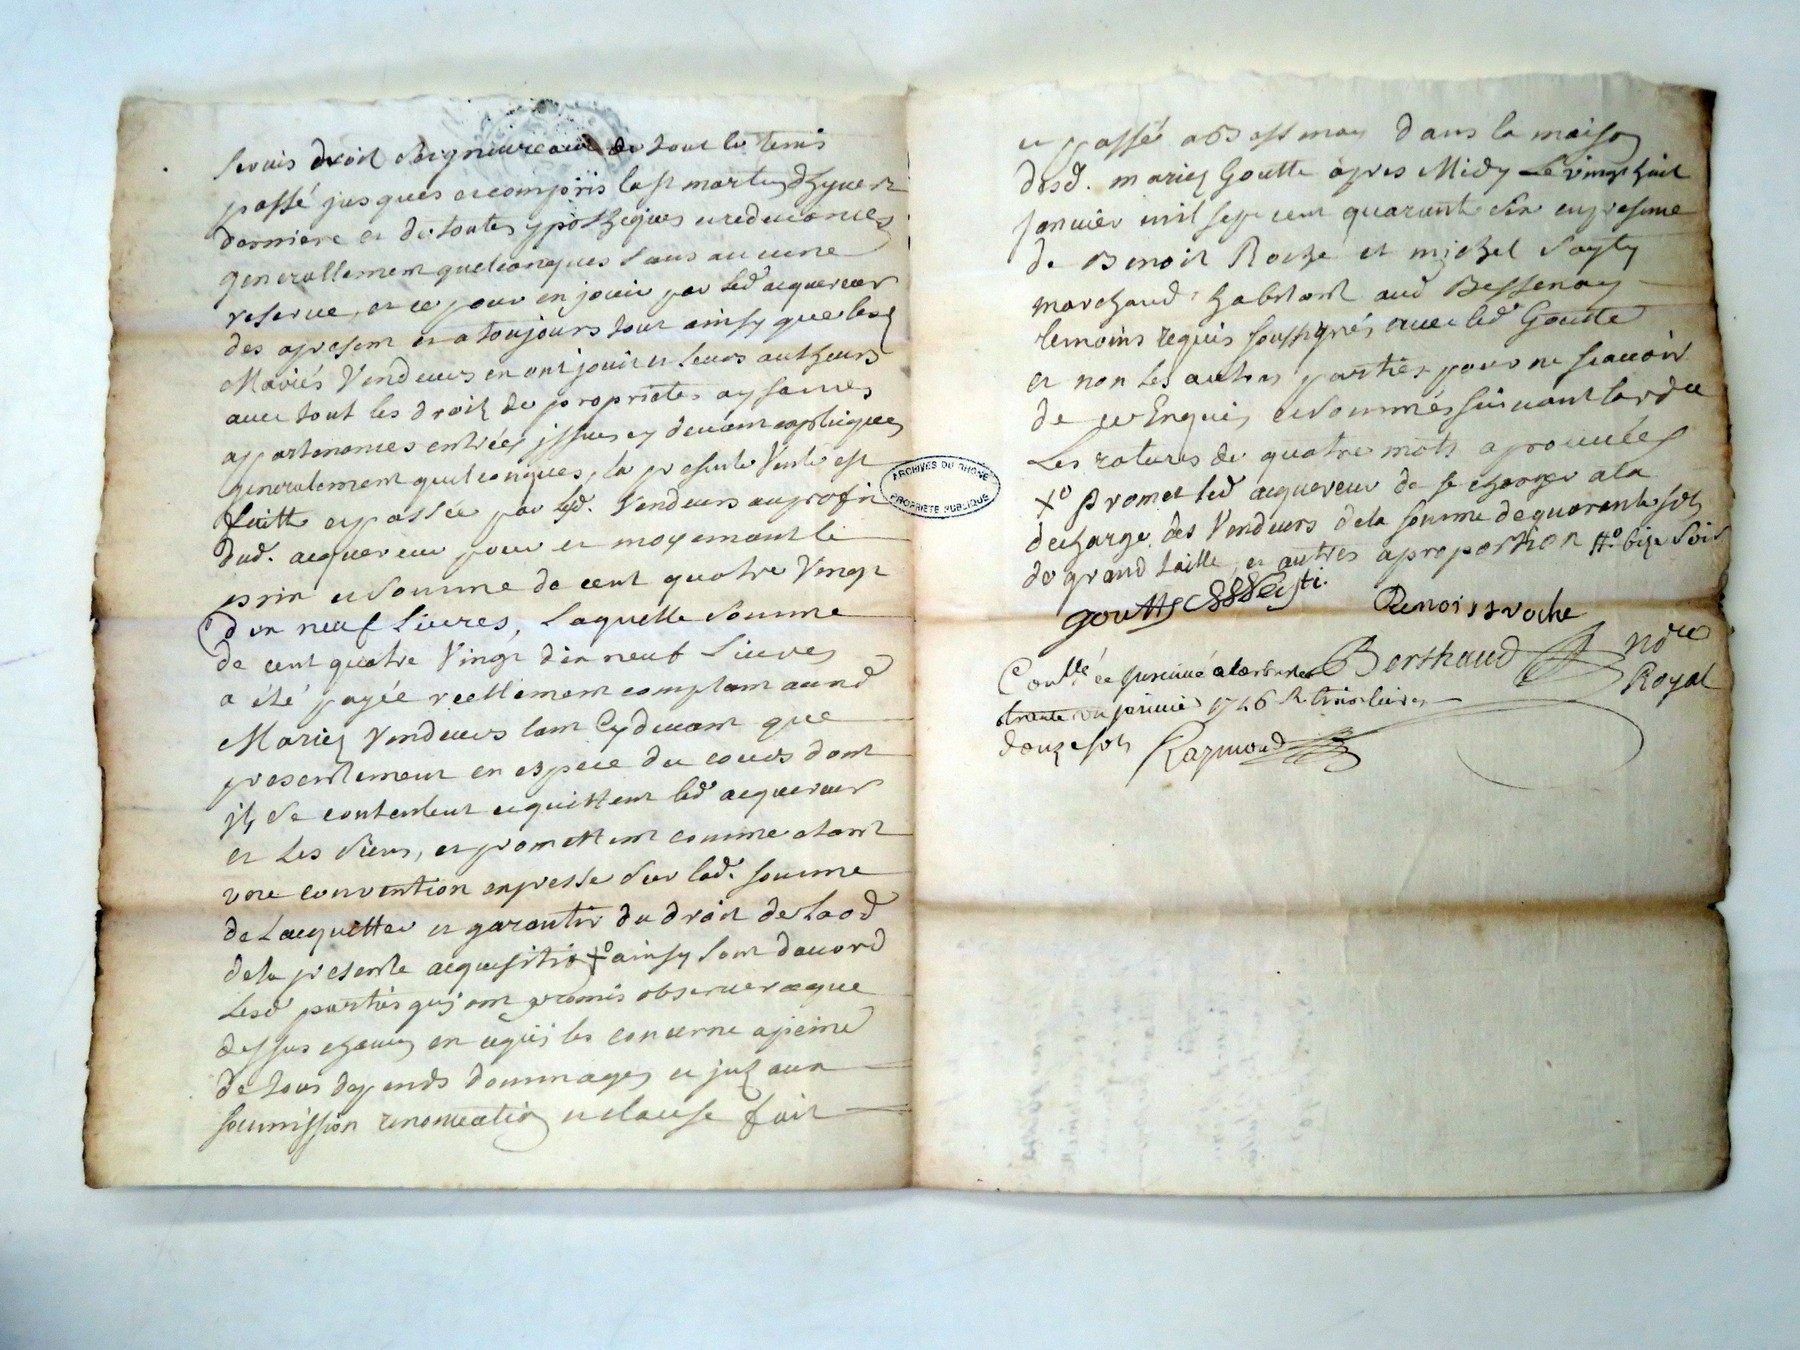 servis droit seigneuriaux de tout le temis
passé jusques et compris la st martin dhyuer
derniere et de toutes ypotheques et redeuances
generallement quelconques sans aucune
reserue, et ce pour en jouir par led acquereur
des apresent et a toujours tout ainsy que lesd
Mariés Vendeurs en ont jouit et leurs autheurs
auec tout les droits de proprietes aysances
apartenances entrées issues cy deuant expliquées
generalement quelconques, la presente Vente est
faitte et passée par lesd. Vendeurs au profit
dud. acquereur pour et moyennant le
prix et somme de cent quatre Vingt
dix neuf Liures, Laquelle somme
de cent quatre Vingt dix neuf Liures
a été payée reellement comptant auxd
Mariés Vendeurs tant Cydeuant que
presentement en espece du cours dont
ils se contentent et quittent led acquereur
et Les siens, et promettent comme etant
vne conuention expresse sur lad. somme
de Lacquitter et garantir du droit de Laod
dela presente acquisition x° ainsy sont dacord
Lesd parties qui ont promis obseruer ce que
dessus chacun en ce qui les concerne a peine
de tous depends dommages et
soumission renonciation et clause fait
ARCHIVES DU RHÔNE
PROPRIÉTÉ PUBLIQUE
et passé a Bessenay dans la maison
desd. mariez Goutte apres Midy Le vingt huit
Januier mil sept cent quarante six en presence
de Benoit Roche et michel
marchand habitant aud Bessenay
temoins requis soussignés auec led Goutte
et non Les autres parties pour ne scauoir
de ce Enquis et sommés suiuant Lordce
Les ratures de quatre mots aprouuées
x° Promet led acquereur de se charger a la
decharge des Vendeurs dela somme de quarante sols
de grand taille, et autres a proportion
goutte Benoist roche
Berthaud Nore
Royal
Conllé et
trente vn januier 1746 R trois liures
douze sols Raymond